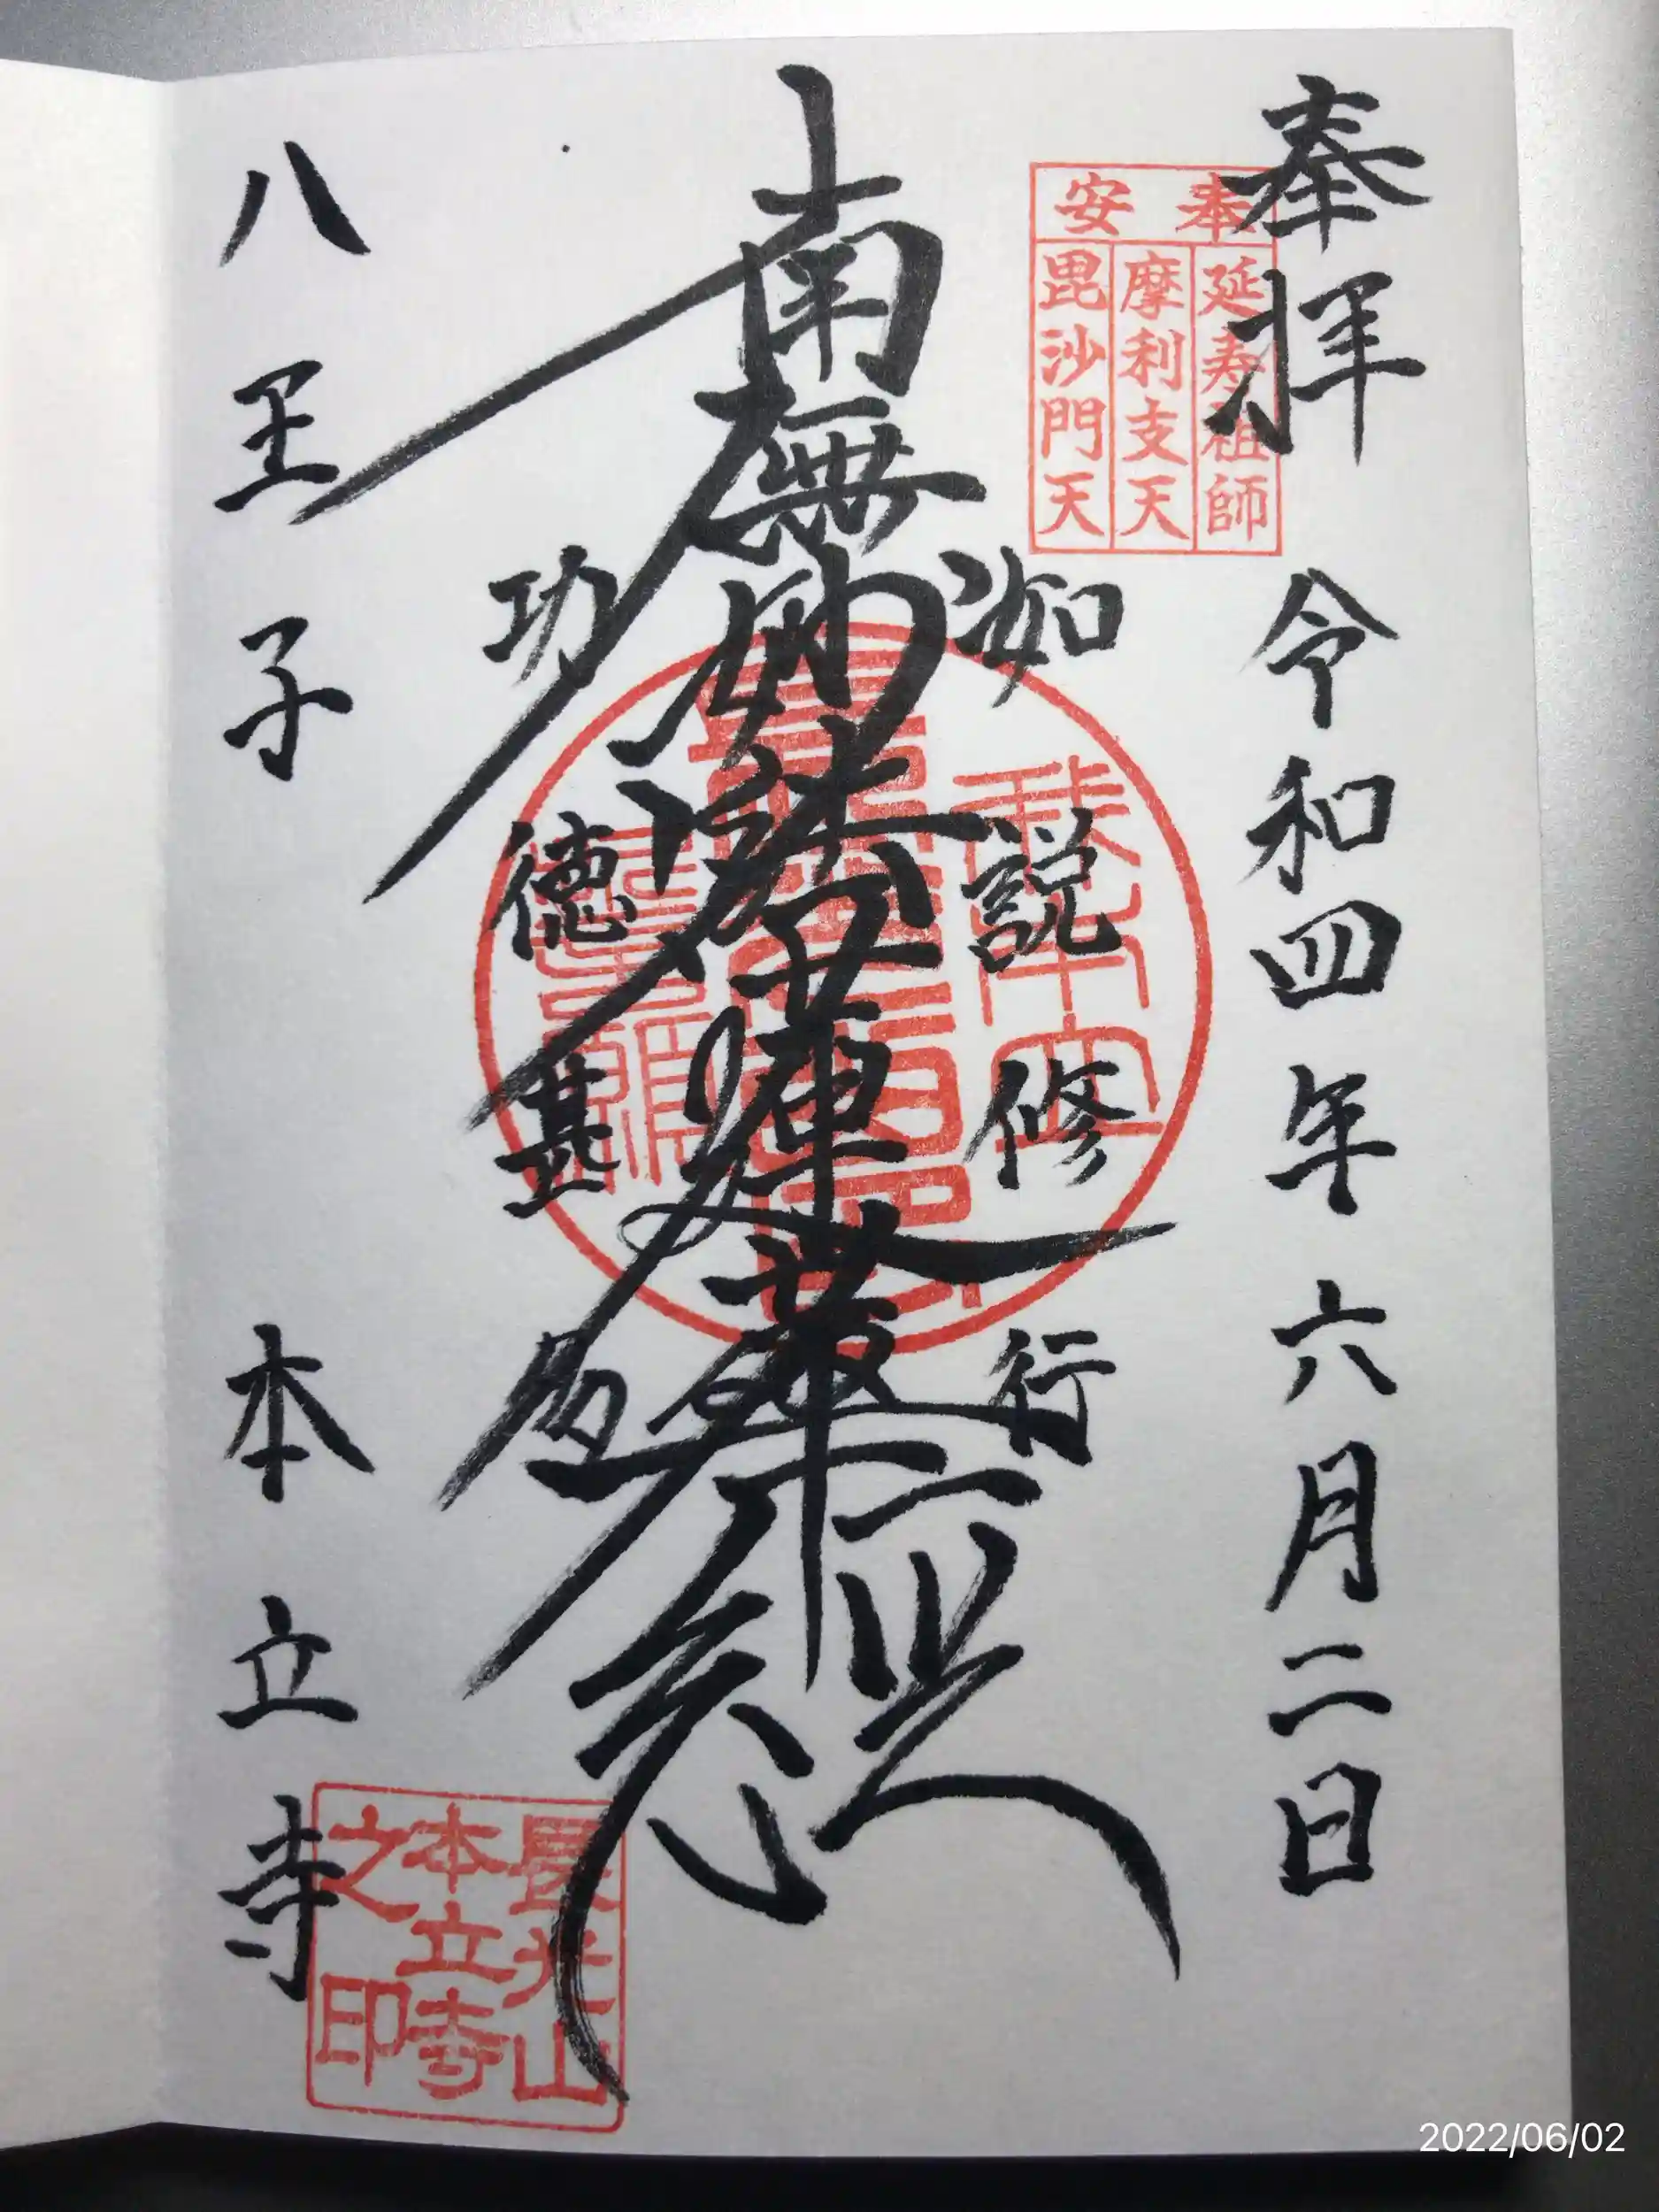 奉拝
令和四年六月二日
奉安
延寿祖師
摩利支天
毘沙門天
如説修行
南無妙法蓮華経
功徳甚
八王子
本立寺
長光山
本立寺
之印
2022/06/02